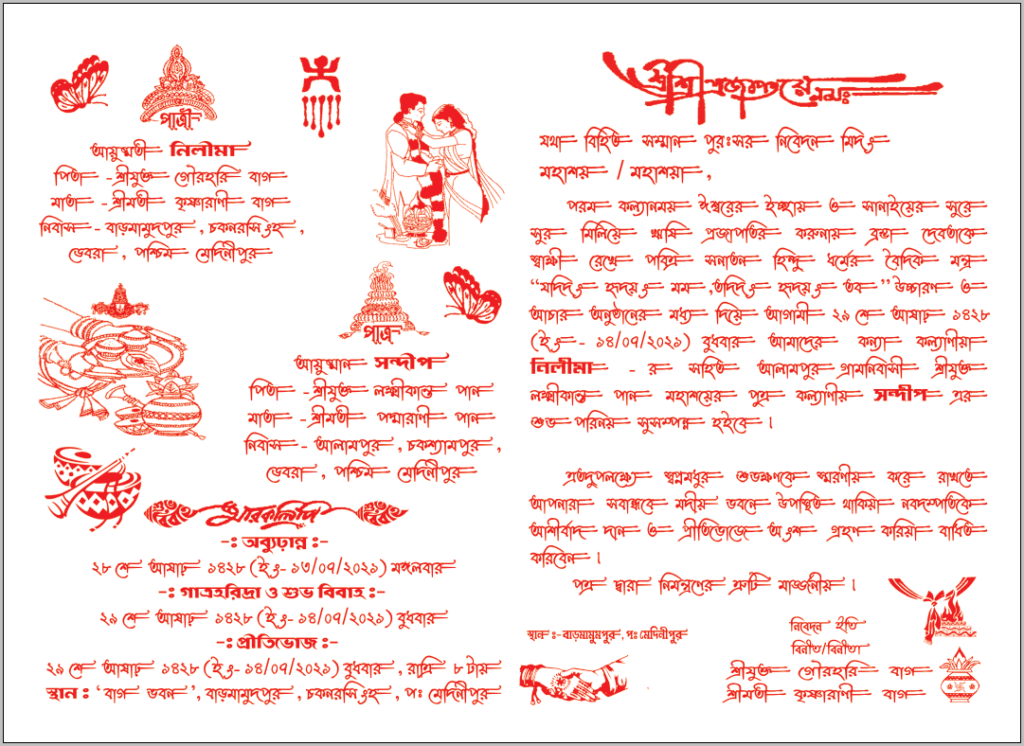 পাত্রী
আয়ুষ্মতী নিলীমা
পিতা - শ্রীযুক্ত গৌরহরি বাগ
মাতা - শ্রীমতী কৃষ্ণারাণী বাগ
নিবাস - বাড়মামুদপুর , চকনরসিংহ ,
ডেবরা , পশ্চিম মেদিনীপুর
পাত্র
আয়ুষ্মান সন্দীপ
পিতা - শ্রীযুক্ত লক্ষ্মীকান্ত পান
মাতা - শ্রীমতী পদ্মারাণী পান
নিবাস - আলামপুর , চকশ্যামপুর ,
ডেবরা , পশ্চিম মেদিনীপুর
স্মারকলিপি
-ঃ অব্যুঢ়ান্ন ঃ-
২৮ শে আষাঢ় ১৪২৮ (ইং- ১৩/০৭/২০২১) মঙ্গলবার
-ঃ গাত্রহরিদ্রা ও শুভ বিবাহ ঃ-
২৯ শে আষাঢ় ১৪২৮ (ইং- ১৪/০৭/২০২১) বুধবার
-ঃ প্রীতিভোজ ঃ-
২৯ শে আষাঢ় ১৪২৮ (ইং- ১৪/০৭/২০২১) বুধবার , রাত্রি ৮ টায়
স্থান ঃ ‘ বাগ ভবন ’, বাড়মামুদপুর , চকনরসিংহ , পঃ মেদিনীপুর
শ্রীশ্রী প্রজাপতয়ে নমঃ
যথা বিহিত সম্মান পুরঃসর নিবেদন মিদং
মহাশয় / মহাশয়া ,
পরম কল্যানময় ঈশ্বরের ইচ্ছায় ও সানাইয়ের সুরে
সুর মিলিয়ে ঋষি প্রজাপতির করুনায় ব্রহ্মা দেবতাকে
স্বাক্ষী রেখে পবিত্র সনাতন হিন্দু ধর্মের বৈদিক মন্ত্র
“যদিদং হৃদয়ং মম ,তদিদং হৃদয়ং তব ” উচ্চারণ ও
আচার অনুষ্ঠানের মধ্য দিয়ে আগামী ২৯ শে আষাঢ় ১৪২৮
(ইং - ১৪/০৭/২০২১) বুধবার আমাদের কন্যা কল্যাণীয়া
নিলীমা - র সহিত আলামপুর গ্রামনিবাসী শ্রীযুক্ত
লক্ষ্মীকান্ত পান মহাশয়ের পুত্র কল্যাণীয় সন্দীপ এর
শুভ পরিনয় সুসম্পন্ন হইবে ।
এতদুপলক্ষ্যে স্বপ্নমধুর শুভক্ষণকে স্মরণীয় করে রাখতে
আপনারা সবান্ধবে মদীয় ভবনে উপস্থিত থাকিয়া নবদম্পতিকে
আশীর্বাদ দান ও প্রীতিভোজে অংশ গ্রহণ করিয়া বাধিত
করিবেন ।
পত্র দ্বারা নিমন্ত্রণের ত্রুটি মার্জ্জনীয় ।
নিবেদন ইতি
স্থান ঃ- বাড়মামুমপুর, পঃ মেদিনীপুর
বিনীত/বিনীতা
শ্রীযুক্ত গৌরহরি বাগ
শ্রীমতী কৃষ্ণারাণী বাগ